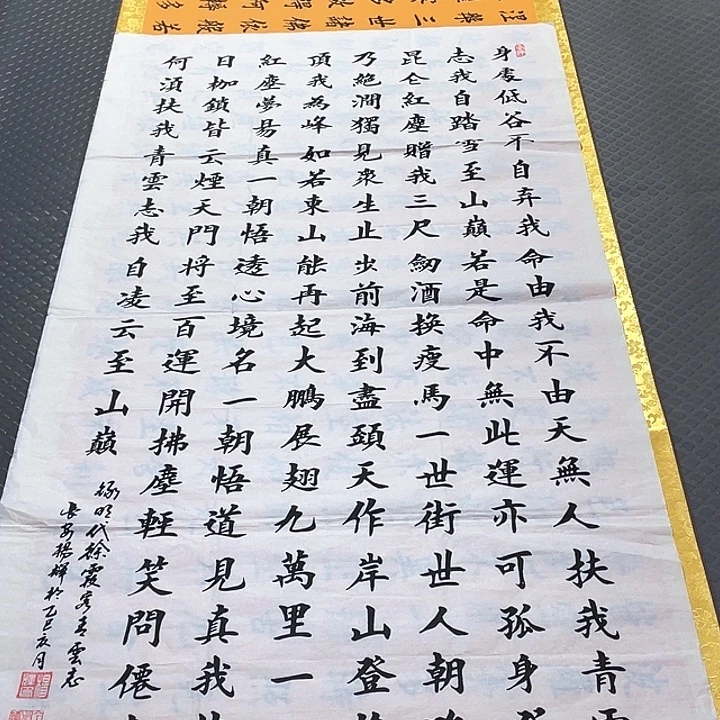 身處低谷不自弃我命由我不由天無人扶我青
志我自踏雪至山巔若是命中無此運亦可孤身登
昆仑紅塵贈我三尺劒酒換瘦馬一世街世人朝
乃絕澗獨見衆生止步前海到盡頭天作岸山登
頂我為峰如若東山能再起大鵬展翅九萬里一
紅塵夢易真一朝悟透心境名一朝悟道見真我
日枷鎖皆云煙天門将至百運開拂塵輕笑問僊
何湏扶我青雲志我自凌云至山巔
錄明代徐霞客青雲志
長安楊輝於乙巳亥月